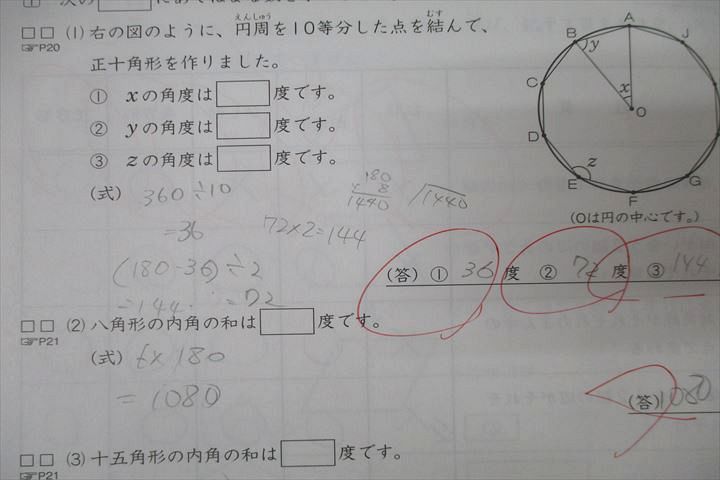 □□ (1) 右の図のように、円周を10等分した点を結んで、
えんしゅう
むす
☞P20
正十角形を作りました。
① xの角度は□度です。
② yの角度は□度です。
③ zの角度は□度です。
(式) 360÷10
=36
(180-36)÷2
=144 =72
180
× 8
1440
1440
72×2=144
A
B
C
D
E
F
G
J
O
x
y
z
(Oは円の中心です。)
(答) ① 36 度 ② 72 度 ③ 144
□□ (2) 八角形の内角の和は□度です。
☞P21
(式) 6×180
=1080
(答) 1080
□□ (3) 十五角形の内角の和は□度です。
☞P21